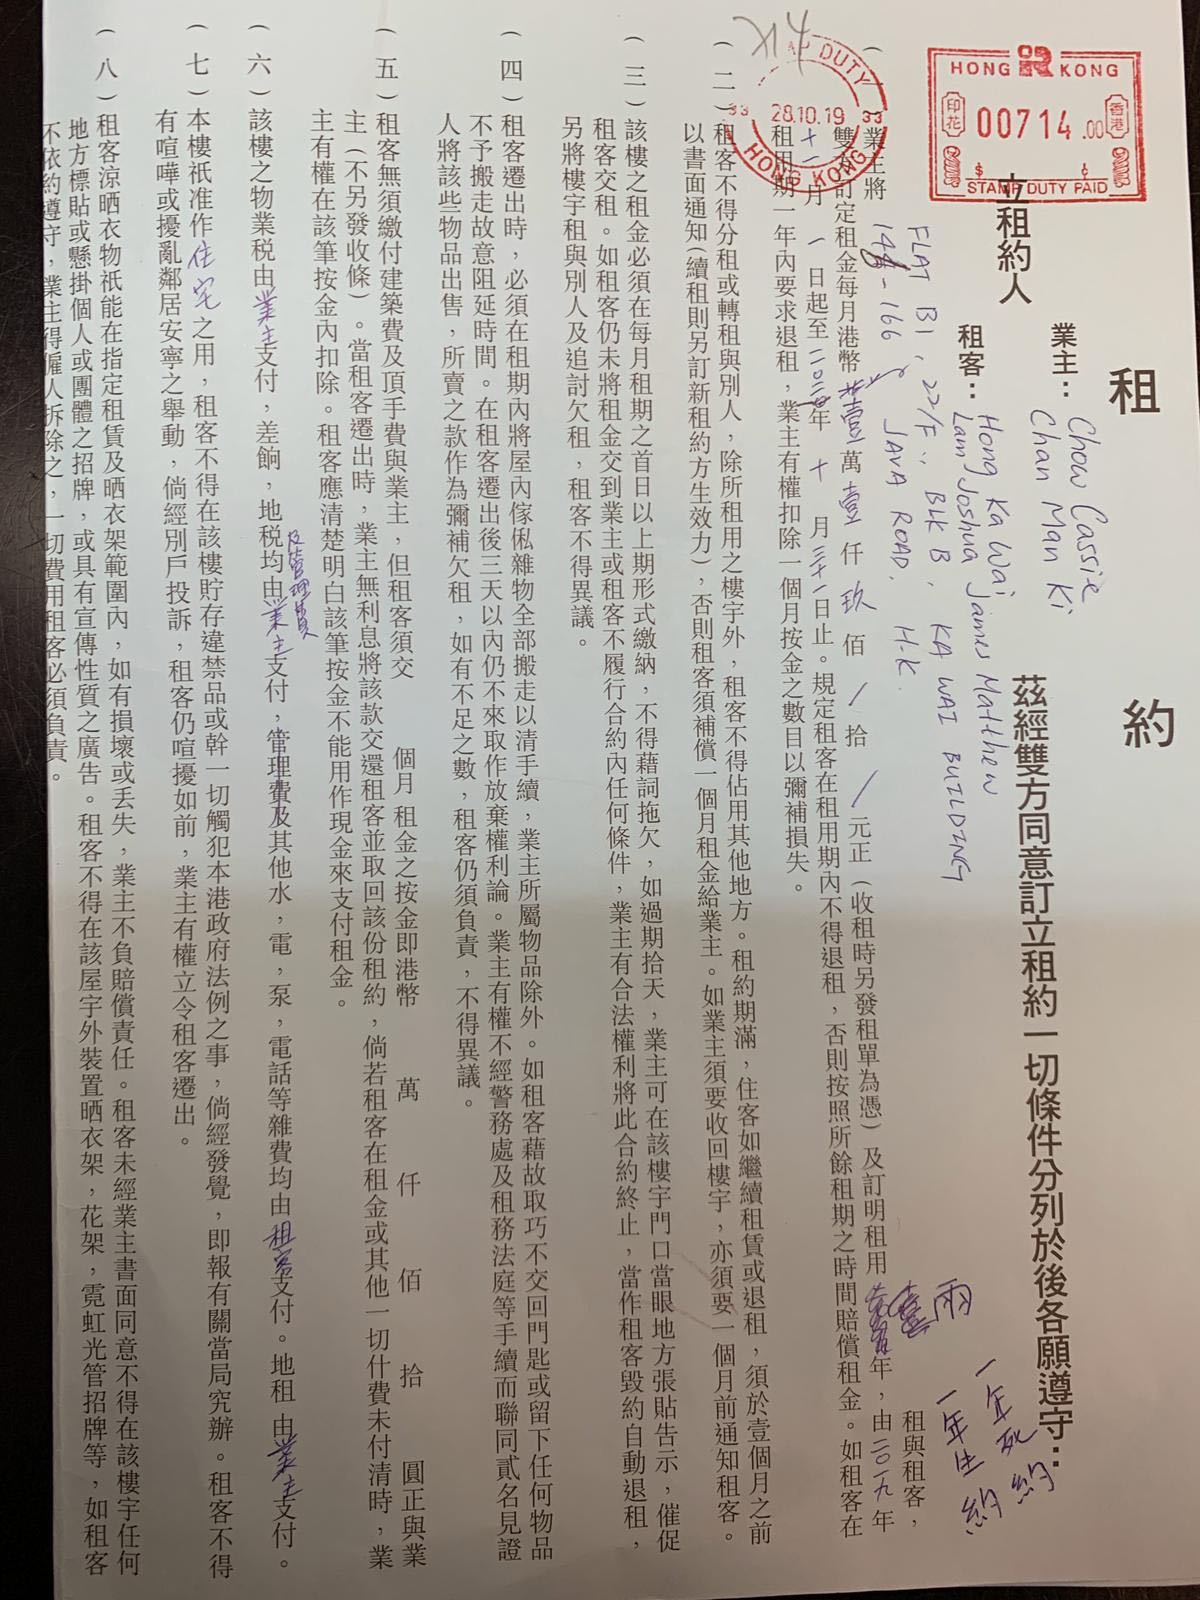 HONG KONG
印花
香港
00714.00
$ ¢
STAMP DUTY PAID
STAMP DUTY
33 28.10.19 33
HONG KONG
租約
立租約人
業主：Chow Cassie
Chan Man Ki
租客：Hong Ka Wai
Lam Joshua James Matthew
茲經雙方同意訂立租約一切條件分列於後各願遵守：
一年死約
一年生約
（一）業主將 FLAT B1, 22/F., BLK B, KA WAI BUILDING
-166 JAVA ROAD, H.K. 租與租客，
雙方訂定租金每月港幣壹萬壹仟玖佰/拾/元正（收租時另發租單為憑）及訂明租用兩年，由二〇一九年
十一月一日起至年十月三十一日止。規定租客在租用期內不得退租，否則按照所餘租期之時間賠償租金。如租客在
租用期一年內要求退租，業主有權扣除一個月按金之數目以彌補損失。
（二）租客不得分租或轉租與別人，除所租用之樓宇外，租客不得佔用其他地方。租約期滿，住客如繼續租賃或退租，須於壹個月之前
以書面通知(續租則另訂新租約方生效力），否則租客須補償一個月租金給業主。如業主須要收回樓宇，亦須要一個月前通知租客。
（三）該樓之租金必須在每月租期之首日以上期形式繳納，不得藉詞拖欠，如過期拾天，業主可在該樓宇門口當眼地方張貼告示，催促
租客交租。如租客仍未將租金交到業主或租客不履行合約內任何條件，業主有合法權利將此合約終止，當作租客毀約自動退租，
另將樓宇租與別人及追討欠租，租客不得異議。
（四）租客遷出時，必須在租期內將屋內傢俬雜物全部搬走以清手續，業主所屬物品除外。如租客藉故取巧不交回門匙或留下任何物品
不予搬走故意阻延時間。在租客遷出後三天以內仍不來取作放棄權利論。業主有權不經警務處及租務法庭等手續而聯同貳名見證
人將該些物品出售，所賣之款作為彌補欠租，如有不足之數，租客仍須負責，不得異議。
（五）租客無須繳付建築費及頂手費與業主，但租客須交 個月租金之按金即港幣 萬 仟 佰 拾 圓正與業
主（不另發收條）。當租客遷出時，業主無利息將該款交還租客並取回該份租約，倘若租客在租金或其他一切什費未付清時，業
主有權在該筆按金內扣除。租客應清楚明白該筆按金不能用作現金來支付租金。
（六）該樓之物業稅由業主支付，差餉，地稅及管理費均由業主支付，管理費及其他水，電，泵，電話等雜費均由租客支付。地租由業主支付。
（七）本樓祇准作住宅之用，租客不得在該樓貯存違禁品或幹一切觸犯本港政府法例之事，倘經發覺，即報有關當局究辦。租客不得
有喧嘩或擾亂鄰居安寧之舉動，倘經別戶投訴，租客仍喧擾如前，業主有權立令租客遷出。
（八）租客涼晒衣物祇能在指定租賃及晒衣架範圍內，如有損壞或丟失，業主不負賠償責任。租客未經業主書面同意不得在該樓宇任何
地方標貼或懸掛個人或團體之招牌，或具有宣傳性質之廣告。租客不得在該屋宇外裝置晒衣架，花架，霓虹光管招牌等，如租客
不依約遵守，業主得僱人拆除之，一切費用租客必須負責。